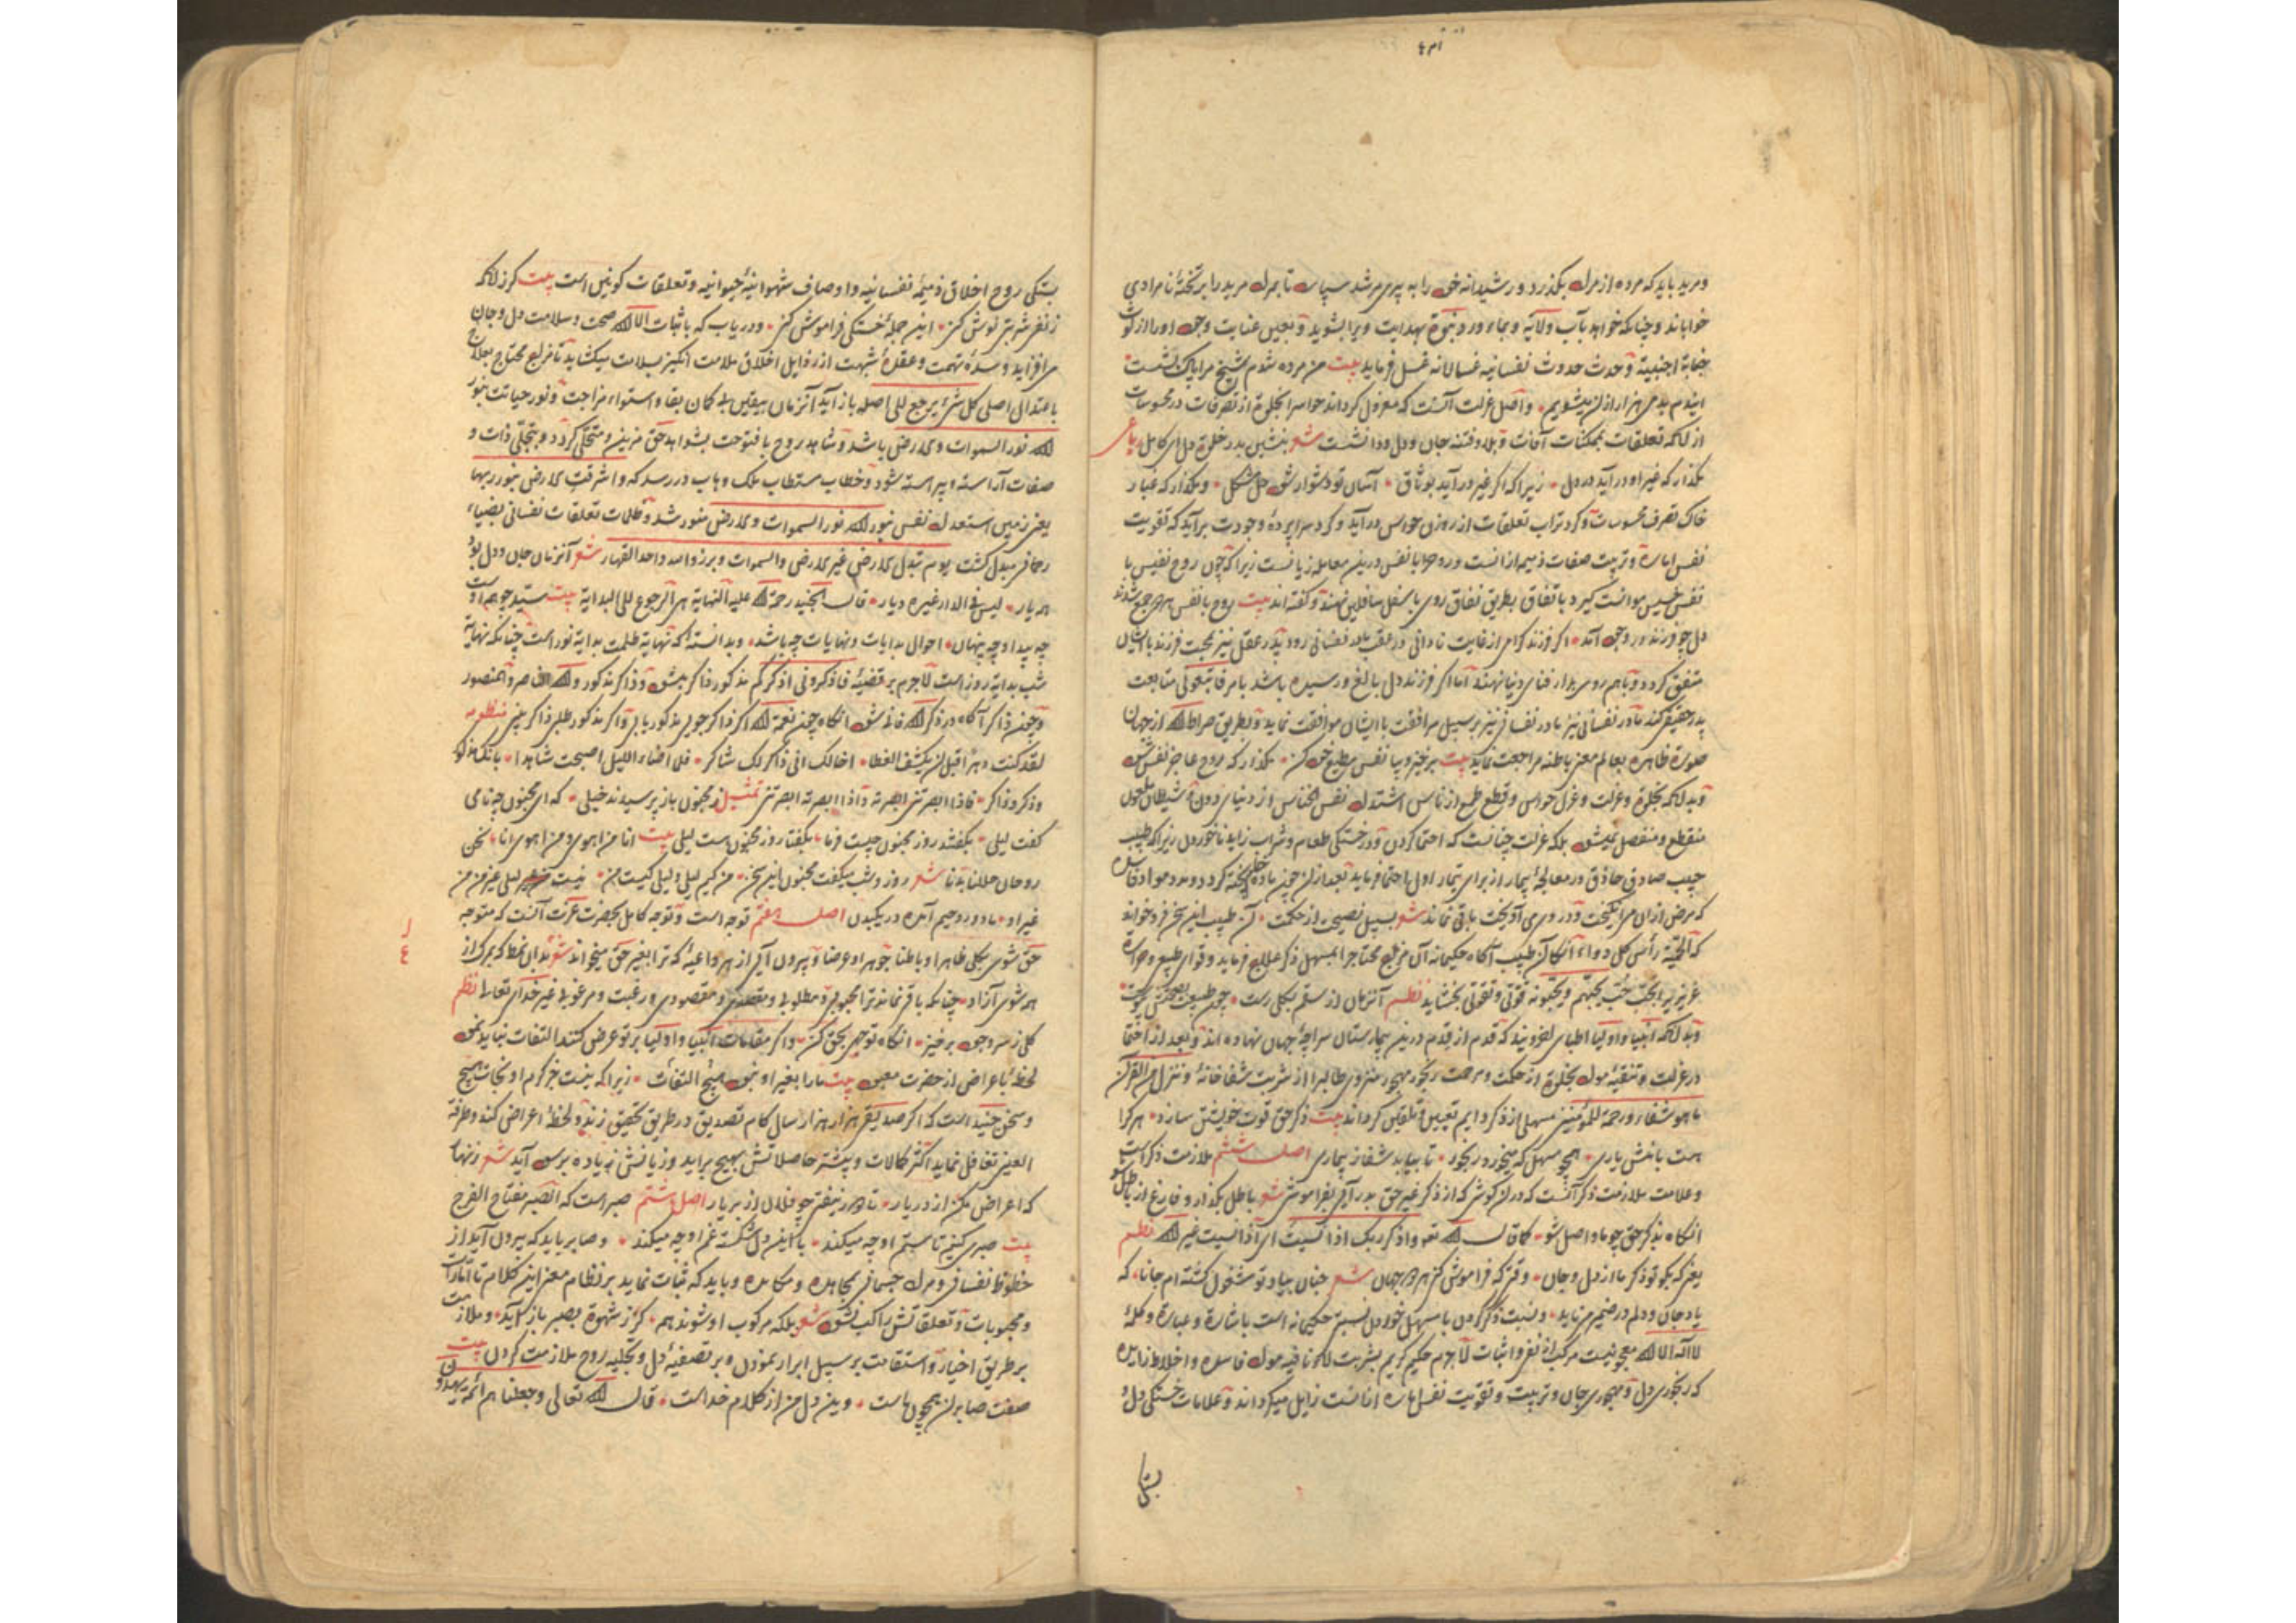 ومرید باید که مرده از مرگ بگذرد و رشیدانه خود را به پیر مرشد سپارد تا بمرگ مرید را بر تختهٔ نامرادی
خواباند و چنانکه خواهد بآب ولایه و بماء ورد نبوة بهدایت ویرا بشوید و بعین عنایت وجود او را از لوث
جنابة اجنبیة و حدث حدوث نفسانیه غسالانه غسل فرماید بیت من مرده شدم شیخ مرا پاک بشست
اینم بدمی هزار از آن میشویم و اصل عزلت آنست که معزول کرداند حواس را بخلوة از تصرفات در محسوسات
از آنکه تعلقات بممکنات آفات و بلا و فتنه جان و دل و دانشست شعر بنشین بدر خلوة دل ای کامل رباعی
مگذار که غیر او درآید در دل زیرا که اگر غیر درآید بوثاق آسان تو دشوار شود حل مشکل و مگذار که غبار
خاک تصرف محسوسات و گرد تراب تعلقات از روزن حواس درآید و گرد سراپردهٔ وجودت برآید که تقویت
نفس اماره و تربیت صفات ذمیمه ازانست و روح را با نفس درین معامله زیانست زیرا که چون روح نفیس با
نفس خسیس موانست گیرد باتفاق بطریق نفاق روی باسفل سافلین نهند و گفته اند بیت روح با نفس هر چو جمع شدند
دل چو فرزند در وجود آمد اگر فرزند گرامی از غایت نادانی در عقب مادر نفسانی رود پدر عقل نیز بمحبت فرزند با ایشان
متفق گردد و باهم روی بدار فنای دنیا نهند اما اگر فرزند دل بالغ و رسیده باشد بامر فاتبعونی متابعت
پدر حقیقی کند مادر نفسانی نیز مادر نفسانی نیز بر سبیل مرافقت با ایشان موافقت نماید و بطریق صراط الله از جهان
صورة ظاهره بعالم معنی باطنه مراجعت نماید بیت برخیز و بیا نفس مطیع خود کن مگذار که روح عاجز نفس شود
و بدانکه بخلوة و عزلت و عزل حواس و قطع طمع از ناس اشتداد نفس الخناس از دنیای دون و شیطان ملعون
منقطع و منفصل میشود بلکه عزلت چنانست که احتما کردن و در خستگی طعام و شراب زاید ناخوردن زیرا که طبیب
حبیب صادق حاذق در معالجهٔ بیمار از برای تیمار اول احتما فرماید بعد از آن چون ماده پخته گردد و مرد مواد فاسده
که مرض ازان مر انگیخت و در وی می آویخت باقی نماند شعر بسبیل نصیحت از حکمت آن طبیب این سخن فرو خواند
که الحمیة رأس کل دواء آنگاه آن طبیب آگاه حکیمانه آن مزاج محتاج را بمسهل ذکر علاج فرماید و قوای طبیعی و حرارة
غریزیه را بحب یحبهم ویحبونه قوتی و تقوتی بخشاید نظم آنزمان از سقم بکلی رست
و بدانکه انبیا و اولیا اطبای اخروی اند که قدم از قدم درین بیمارستان سراچهٔ جهان نهاده اند و بعد از احتما
در عزلت و تنقیهٔ مواد بخلوة از حکمت و مرحمت رنجور مهجور منزوی طالب را از شربت شفاخانهٔ و ننزل من القرآن
ما هو شفاء ورحمة للمؤمنین مسهلی از ذکر دایم تعیین و تلقین گرداند بیت ذکر حق قوت خویشتن سازد هر کرا
همت باشش یاری همچو مسهل که میخورد رنجور تا بیابد شفا ز بیماری اصل ششم ملازمت ذکر است
و علامت ملازمت ذکر آنست که در آن کوشی که از ذکر غیر حق بدر آیی بفراموشی شعر باطل بگذار و فارغ از باطل شو
آنگاه بذکر حق چو ما واصل شو کما قال الله تعو واذکر ربک اذا نسیت ای اذا نسیت غیر الله نظم
یعنی که بگو تو ذکر ما از دل و جان وقتی که فراموش کنی هر دو جهان شعر چنان بیاد تو مشغول گشته ام جانا که
یاد جان و دلم در ضمیر می ناید و نسبت ذکر کردن با مسهل خوردن نسبتی حکیمانه است باشارة و عبارة و کلمهٔ
لا اله الا الله معجونیست مرکب از نفی و اثبات لاجرم حکیم کریم بشربت لا نافیه مواد فاسده و اخلاط زایده
که رنجوری دل و مهجوری جان و تربیت و تقویت نفس اماره ازانست زایل میگرداند و علامات خستگی دل و
بستگی
بستگی روح اخلاق ذمیمهٔ نفسانیه و اوصاف شهوانیهٔ حیوانیه و تعلقات کونین است بیت گر زانکه
ز نفی شربتی نوش کنی این جملهٔ خستگی فراموش کنی و دریاب که باثبات الا الله صحت و سلامت دل و جان
می افزاید و سدهٔ تهمت و عقدهٔ شبهت از رذایل اخلاق ملامت انگیز بسلامت میگشاید تا مزاج محتاج بعلاج
باعتدال اصلی کل شیء یرجع الی اصله باز آید آنزمان بیقین بی گمان بقا و استواء مزاجت و نور حیاتت بنور
الله نور السموات والارض باشد و شاهد روح با فتوحت بشواهد حق مزین و متجلی گردد و بتجلی ذات و
صفات آراسته و پیراسته شود و خطاب مستطاب ملک وهاب در رسد که واشرقت الارض بنور ربها
یعنی زمین استعداد نفس بنور الله نور السموات والارض منور شد و ظلمات تعلقات نفسانی بضیاء
رحمانی مبدل گشت یوم تبدل الارض غیر الارض والسموات وبرزوا لله الواحد القهار شعر آنزمان جان و دل بود
هر یار لیس فی الدار غیره دیار قال الجنید رحمة الله علیه النهایة هی الرجوع الی البدایة بیت
چه پیدا و چه پنهان احوال بدایات و نهایات چه باشد و بدانسته که نهایة ظلمت بدایة نور است چنانکه نهایة
شب بدایة روز است لاجرم بر قضیهٔ فاذکرونی اذکرکم مذکور ذاکر میشود و ذاکر مذکور والله الناصر والمنصور
و چون ذاکر آگاه در ذکر الله فانی شود آنگاه چون نعمة الله اگر ذاکر جویی مذکور یابی و اگر مذکور طلبی ذاکر بینی منظومه
لقد کنت دهرا قبل ان یکشف الغطا اخالک انی ذاکر لک شاکر فلما اضاء اللیل اصبحت شاهدا بانک مذکور
وذکر وذاکر فاذا ابصرتنی ابصرته واذا ابصرته ابصرتنی تمثیل ز مجنون باز پرسیدند خیلی که ای مجنون چه نامی
گفت لیلی بگفتند روز مجنون چیست فرما بگفتا روز مجنونست لیلی بیت انا من اهوی ومن اهوی انا نحن
روحان حللنا بدنا شعر روز و شب میگفت مجنون این سخن من کیم لیلی و لیلی کیست من نیست لیلی غیر من من
غیر او ما دو روحیم آمده در یک بدن اصل هفتم توجه است و توجه کامل بحضرت عزت آنست که متوجه
حق شوی بکلی ظاهرا و باطنا جوهرا و عرضا و بیرون آیی از هر داعیهٔ که ترا بغیر حق میخواند شعر بدان نمط که بمرگ از
همه شوی آزاد چنانکه باقی نماند ترا محبوبی و مطلوبی و مقصدی و مقصودی و رغبت و مرغوبی غیر خدای تعالی نظم
کلی ز سر وجود برخیز آنگاه توجهی بحق کن و اگر مقامات انبیا و اولیا بر تو عرض کنند التفات نباید نمود
لحظهٔ باعراض از حضرت معبود بیت ما را بغیر او نبود هیچ التفات زیرا که نیست جز کرم او نجات هیچ
و سخن جنید است که اگر صدیقی هزار هزار سال گام تصدیق در طریق تحقیق زند و لحظهٔ اعراض کند و طرفة
العینی تغافل نماید اکثر کمالات و بیشتر حاصلاتش بهیچ برآید و زیانش زیاده بر سود آید شعر زنهار
که اعراض مکن از در یار تا دور نیفتی چو فلان از بر یار اصل هشتم صبر است که الصبر مفتاح الفرج
بیت صبری کنیم تا ستم او چه میکند با این دل شکسته غم او چه میکند و صابر باید که بیرون آید از
حظوظ نفسانی و مراد جسمانی بمجاهده و مکابده و باید که ثبات نماید بر نظام معنی این کلام تا
و محبوبات و تعلقاتش راکب نشود شعر بلکه مرکوب او شوند هم گر ز شهوة بصبر باز آید و ملازمت
بر طریق اخیار و استقامت بر سبیل ابرار نمودن و بر تصفیهٔ دل و تجلیه روح ملازمت کردن بیت
صفت صابران همچون ماست وین دل من از کلام خداست قال الله تعالی وجعلنا هم ائمة یهدون